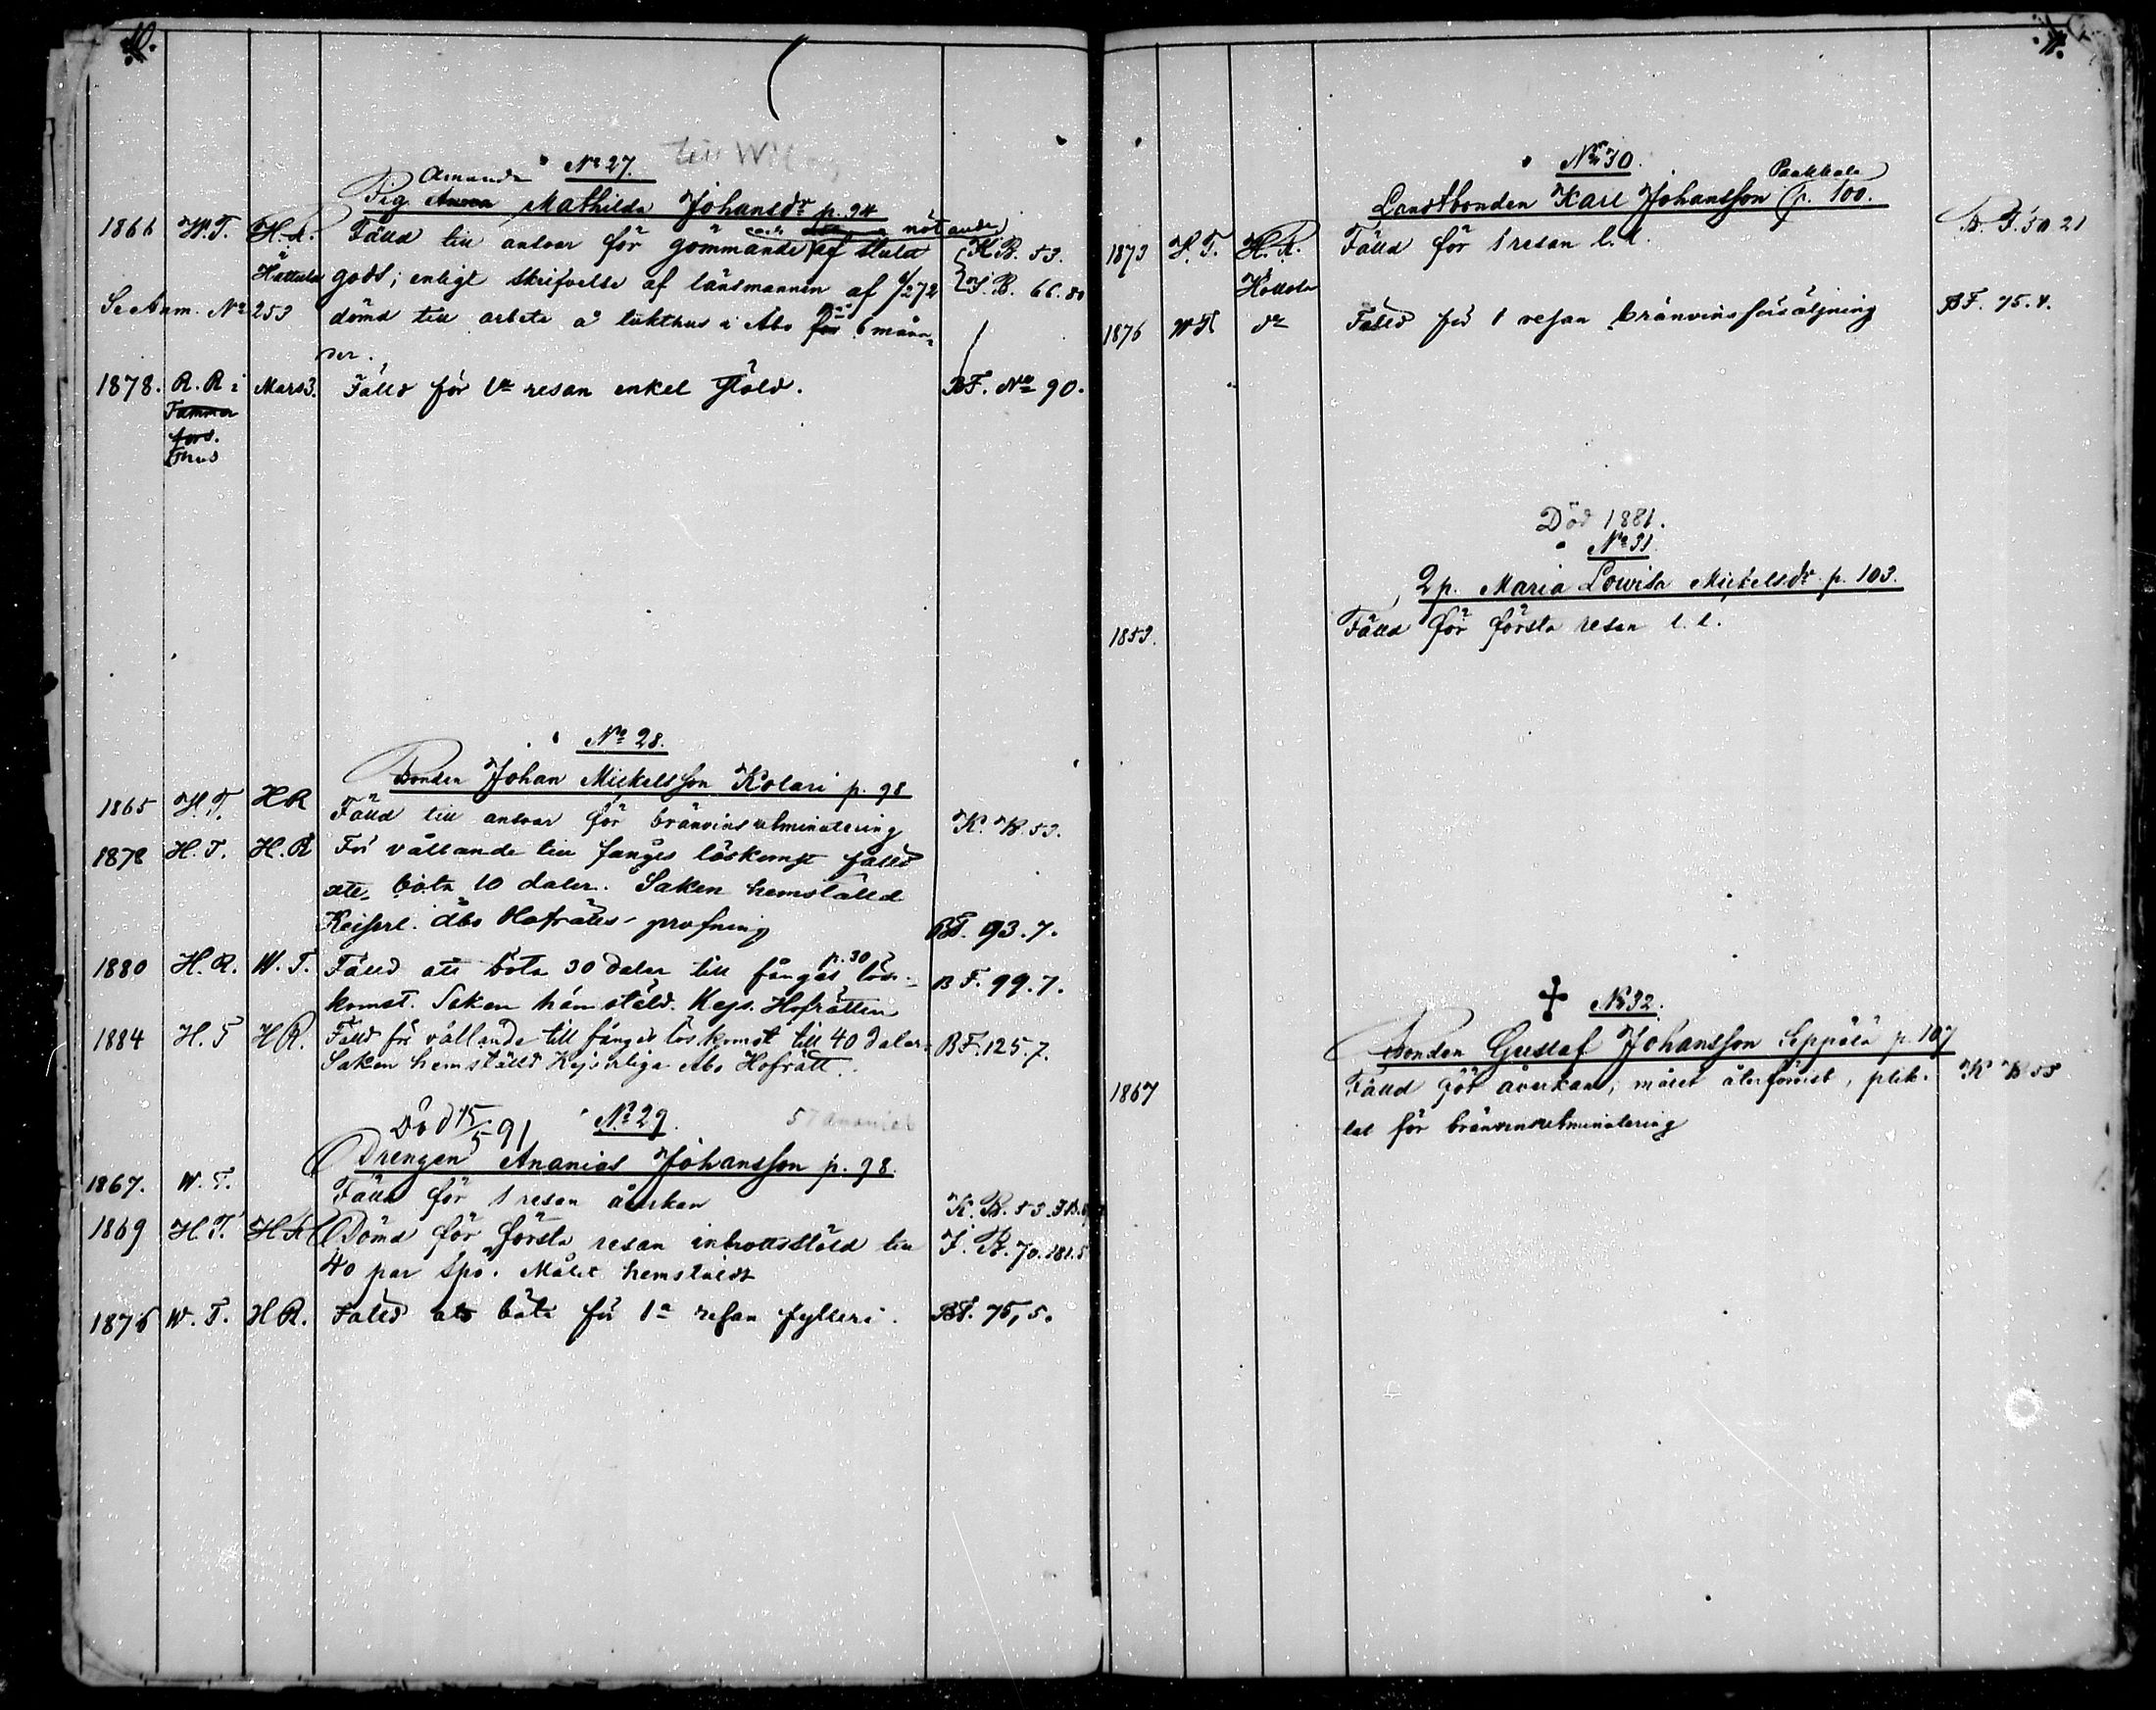 10.
No 27.
Amanda
Pig. Anna Mathilda Johansdr p. 94
1866 W.T. H.R. Fälld till ansvar för gömmande af stulet K.B. 53.
Hattula godt; enligt skrifvelse af länsmannen af J.B. 66.80
Se Anm. No 253 dömd till arbete å tukthus i Åbo för 6 måna-
der.
1878. R.R i Mars 3. Fälld för 1a resan enkel stöld. BF. No 90.
Tammer
fors.
Thus
No 28.
Bonden Johan Mickelsson Kolari p. 98
1865 H.T. HR Fälld till ansvar för bränvins utminutering K.B. 53.
1878 H.T. H.R För vållande till fånges löskomst fälld
att böta 10 daler. Saken hemställd
Keiserl. Åbo Hofrätts profning BF. 93.7.
p. 30
1880 H.R. W.T. Fälld att böta 30 daler till fånges lös- BF. 99.7.
komst. Saken hemstäld. Kejs. Hofrätten
1884 H.T HR. Fälld för vållande till fånges löskomst till 40 daler. BF. 125.7.
Saken hemställd Kejserliga Åbo Hofrätt.
Död 15/5 91 No 29. 57 Ananias
Drengen Ananias Johansson p. 98.
1867. W.T. Fälld för 1 resan åverkan K.B. 53.
1869 H.T. HR Dömd för första resan inbrottsstöld till J.B. 70.181.5
40 par spö. Målet hemstäldt
1876 W.T. HR. Fälld att böta för 1a resan fylleri. BF. 75,5.
11.
No 30.
Paakkola
Landtbonden Karl Johansson p. 100.
1873 H.T. H.R. Fälld för 1 resan l.l. B.F. 50 21
Hattula
1876 WT do Fälld för 1 resan bränvinsförsäljning BF. 75.4.
Död 1881.
No 31.
2p. Maria Lovisa Mickelsdr p. 103.
1853. Fälld för första resan l.l.
No 32.
Bonden Gustaf Johansson Seppälä p. 107
1867 Fälld för åverkan, målet återförvist, plik- K B 55
tat för bränvinsutminutering